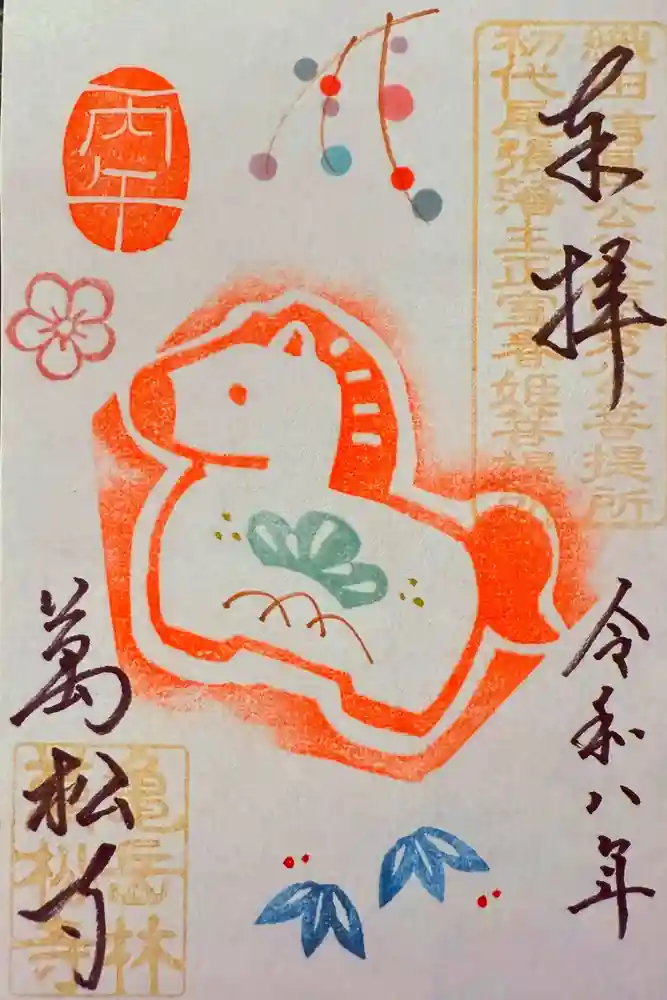 奉拝
織田信長公父信秀公菩提所
初代尾張藩主正室春姫菩提所
令和八年
丙午
萬松寺
亀岳林
萬松寺